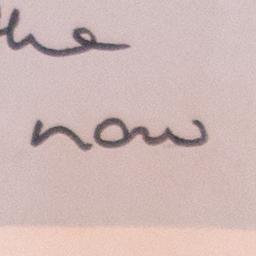 the
now